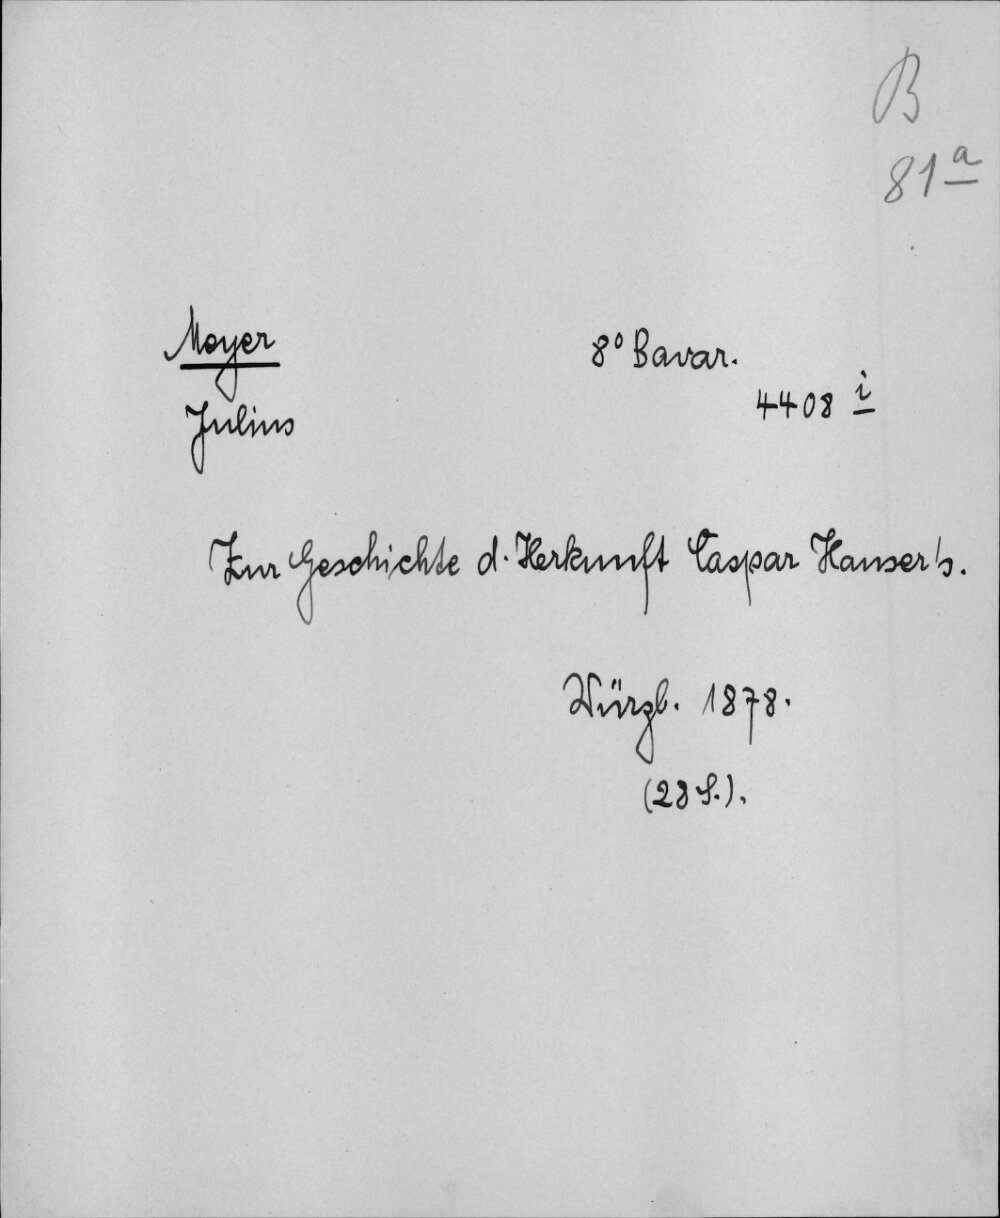 B
81 a
Meyer
8° Bavar.
4408 i
Julius
Zur Geschichte d. Herkunft Caspar Hauser's.
Würzb. 1878.
(28 S.).